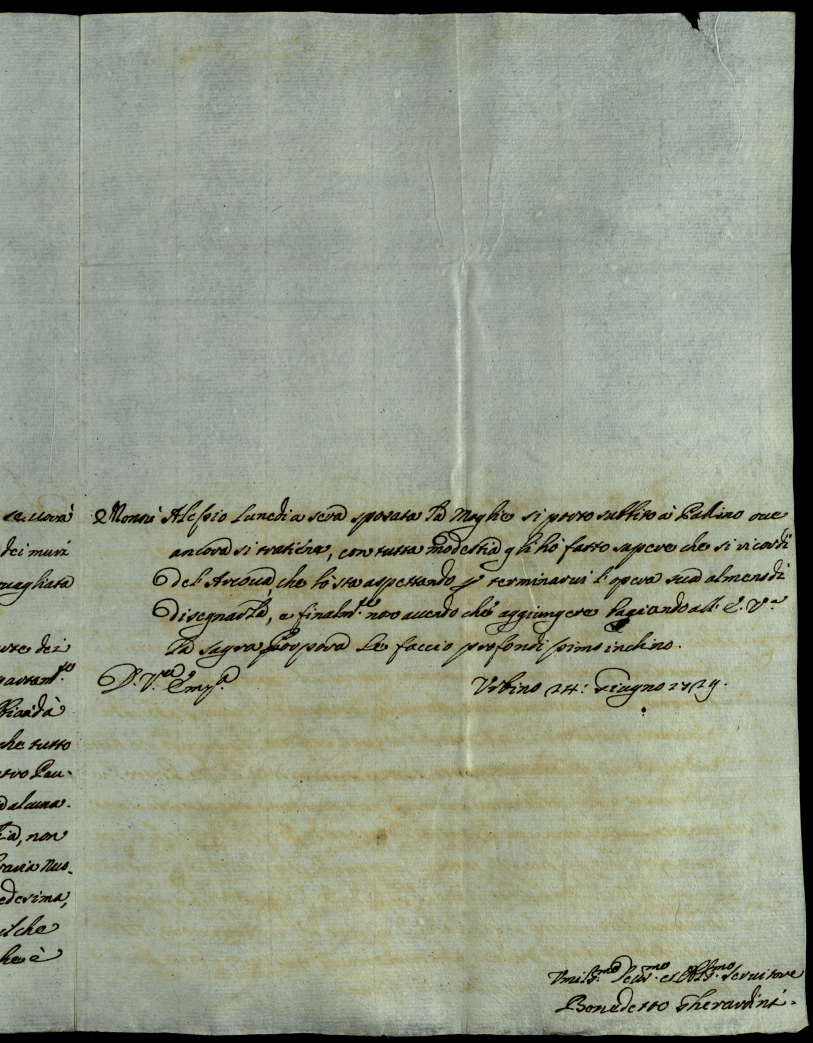 se uorà
dei muri
uagliata
che tutto
d alcuna.
, non
edesima,
il che
che è
Monsù Alessio Lunedi a sera sposata la Moglie si portò subbito à Pallino oue
ancora si tratiene, con tutta modestia gli hò fatto sapere che si ricordi
del Arcoua, che lo sta aspettando p terminarui l'opera sua almeno di
disegnarla, e finalm.te non auendo che aggiungere baciando all' E. V.a
la sagra Porpora Le faccio profondissimo inchino.
D. V.ra Em.za Vrbino 24: Giugno 1729.
Vmiliss.mo Deuo.mo et Obl.mo Seruitore
Benedetto Gherardini.